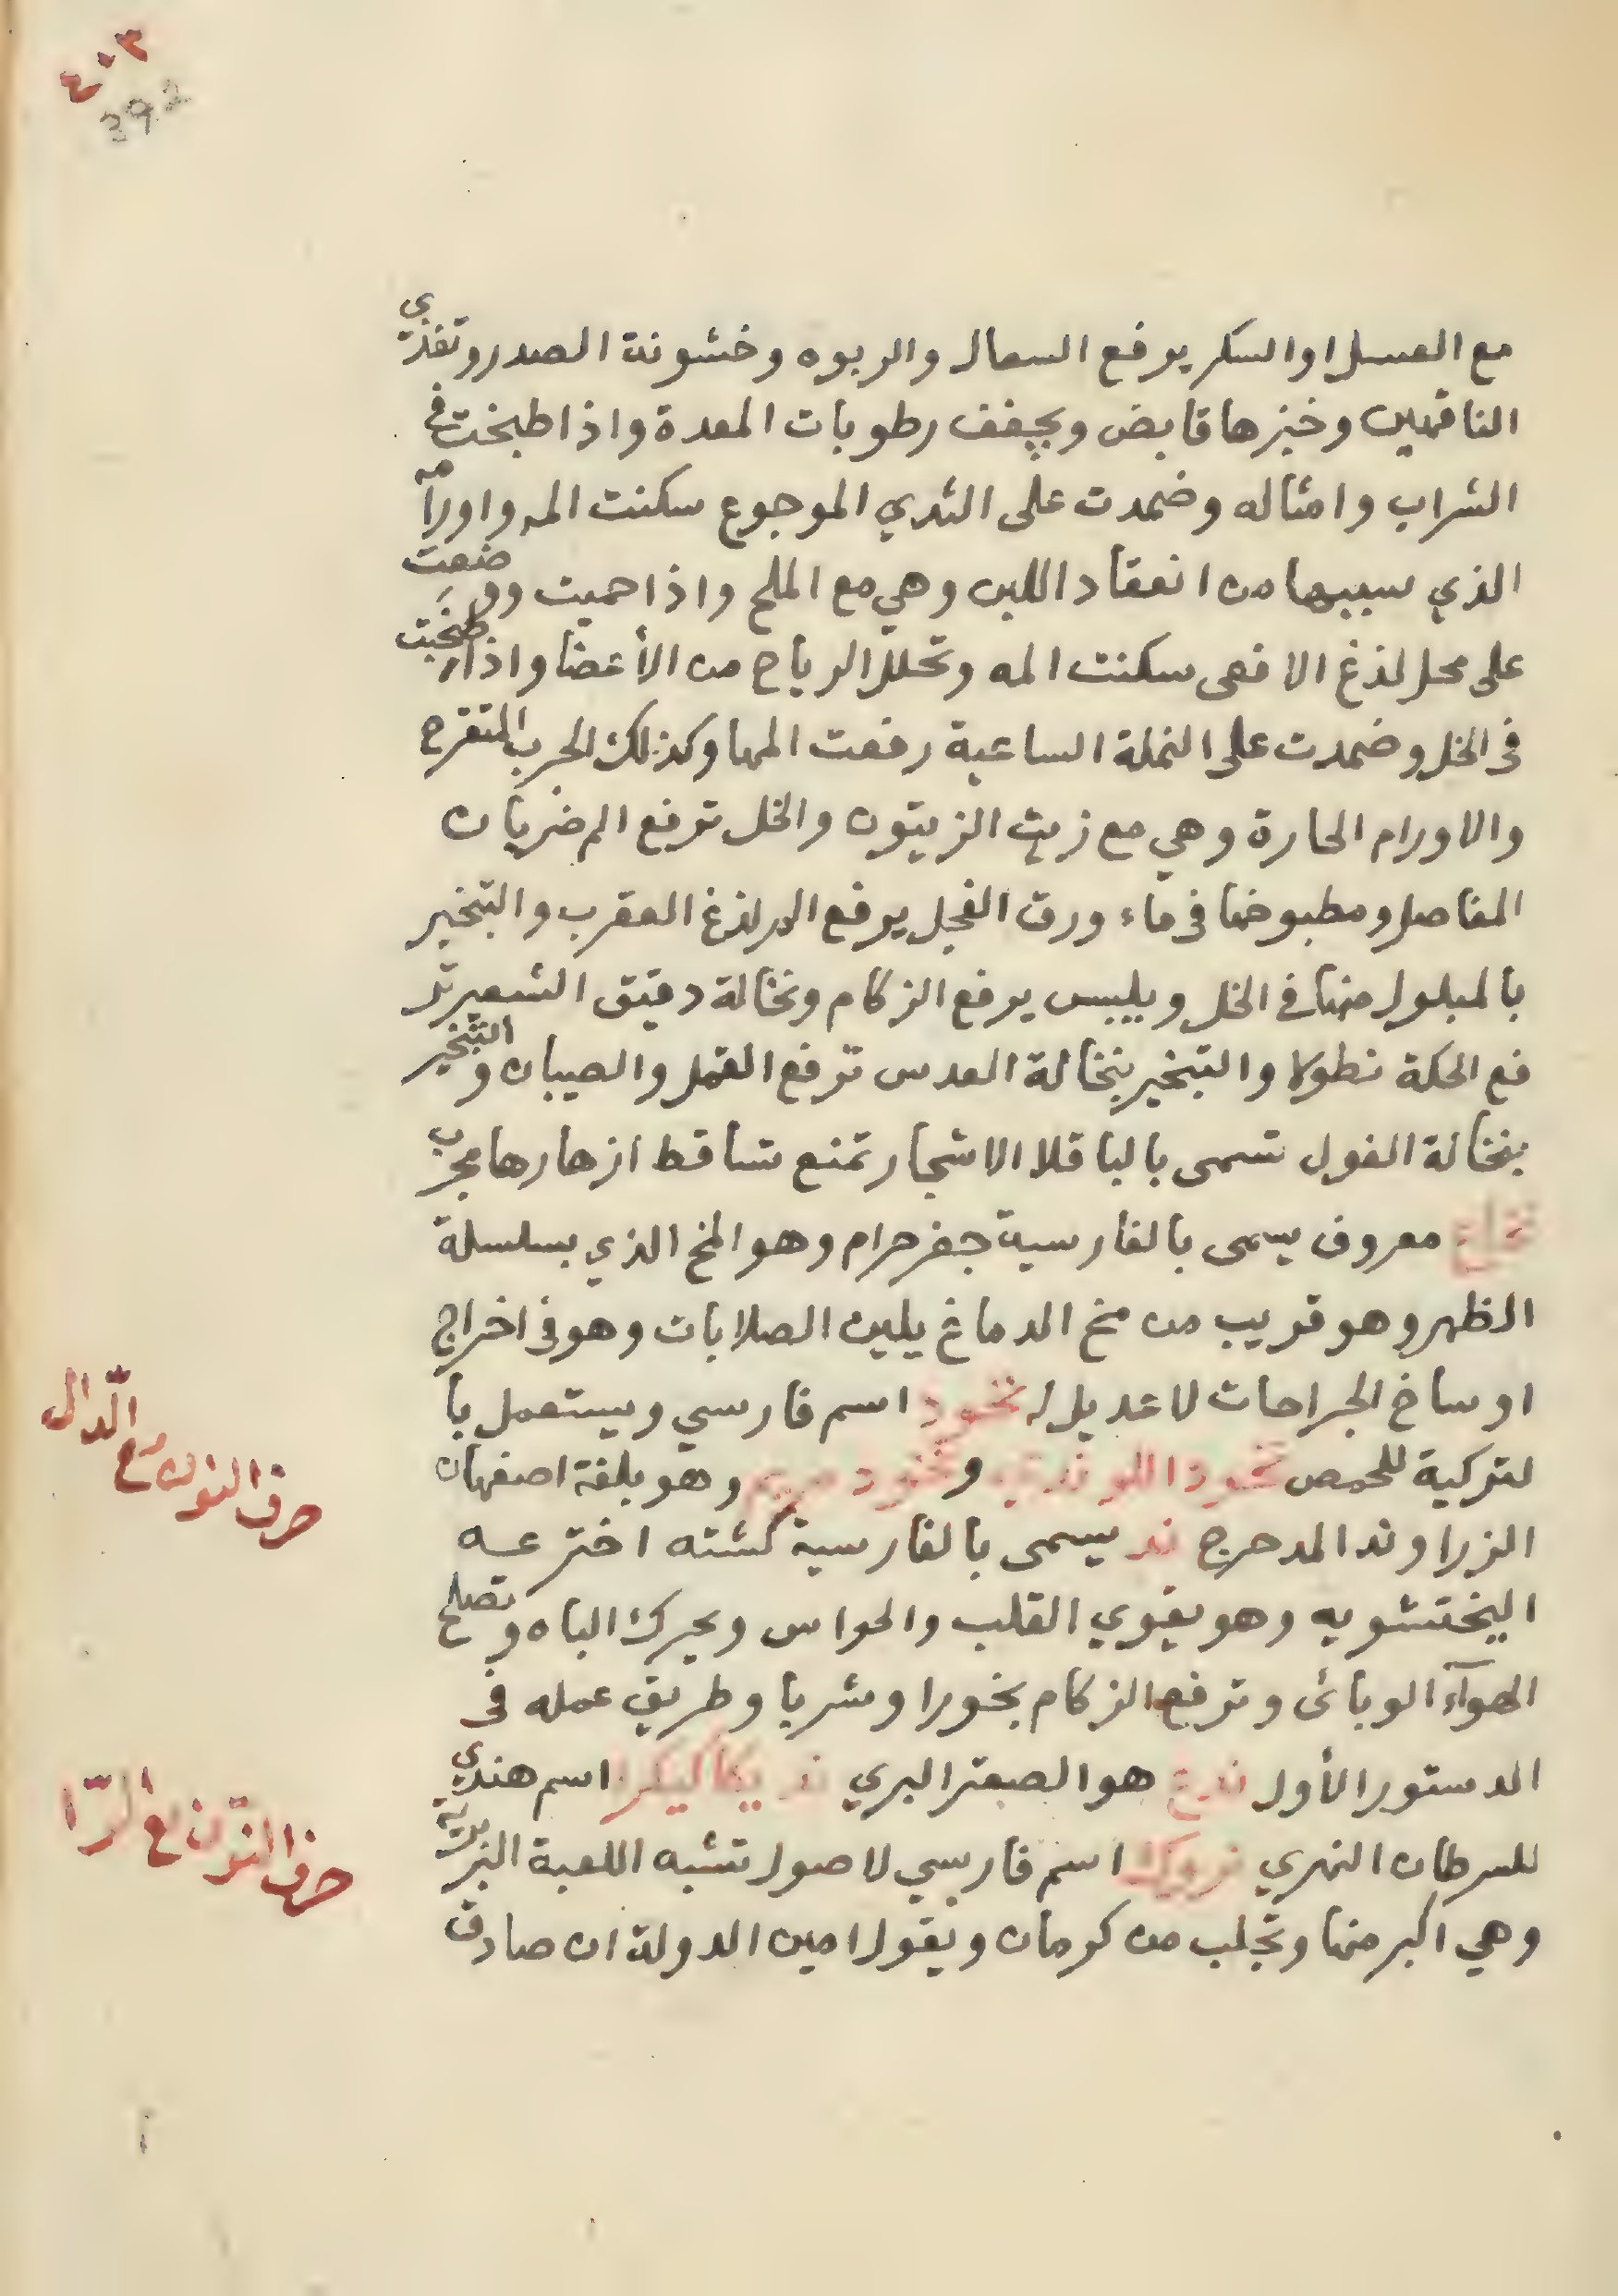 ٤٠٣
392
مع العسل او السكر يرفع السعال والربوه وخشونة الصدر وتغذي
الناقهين وخبزها قابض ويجفف رطوبات المعدة واذا طبخت في
الشراب وامثاله وضمدت على الثدي الموجوع سكنت المه واورامه
الذي سببها من انعقاد اللبن وهي مع الملح واذا حميت ووضعت
على محل لذغ الافعى سكنت المه وتحلل الرياح من الأعضا واذا طبخت
فى الخل وضمدت على النملة الساعية رفعت المها وكذلك الجرب المتقرح
والاورام الحارة وهي مع زيت الزيتون والخل ترفع الم ضربان
المفاصل ومطبوخا فى ماء ورق الفجل يرفع الم لذغ العقرب والتبخير
بالمبلول منها في الخل ويلبس يرفع الزكام ونخالة دقيق الشعير تر
فع الحكة نطولا والتبخير بنخالة العدس ترفع القمل والصيبان والتبخير
بنخالة الفول تسمى بالباقلا الاشجار تمنع تساقط ازهارها مجرب
نخاع معروف يسمى بالفارسية جفر حرام وهو المخ الذي بسلسلة
الظهر وهو قريب من مخ الدماغ يلين الصلابات وهو فى اخراج
اوساخ الجراحات لا عديل له نخود اسم فارسي ويستعمل با
لتركية للحمص نخود اللوندي ونخود مريم وهو بلغة اصفهان
الزراوند المدحرج ند يسمى بالفارسية كشته اخترعه
البختشويه وهو يقوي القلب والحواس ويحرك الباه وتصلح
الهوآء الوبائى وترفع الزكام بخورا وشربا وطريق عمله فى
الدستور الأول ندغ هو الصعتر البري ند يكاكيكر اسم هندي
للسرطان النهري نروك اسم فارسي لاصول تشبه اللعبة البربرية
وهي اكبر منها وتجلب من كرمان ويقول امين الدولة ان صادق
حرف النون مع الدّال
حرف النّون مع الرّا